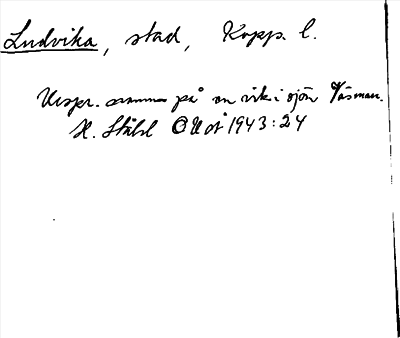 Ludvika, stad, Kopp. l.
Urspr. namnet på en vik i sjön Väsman.
H. Ståhl OUoÅ 1943:24